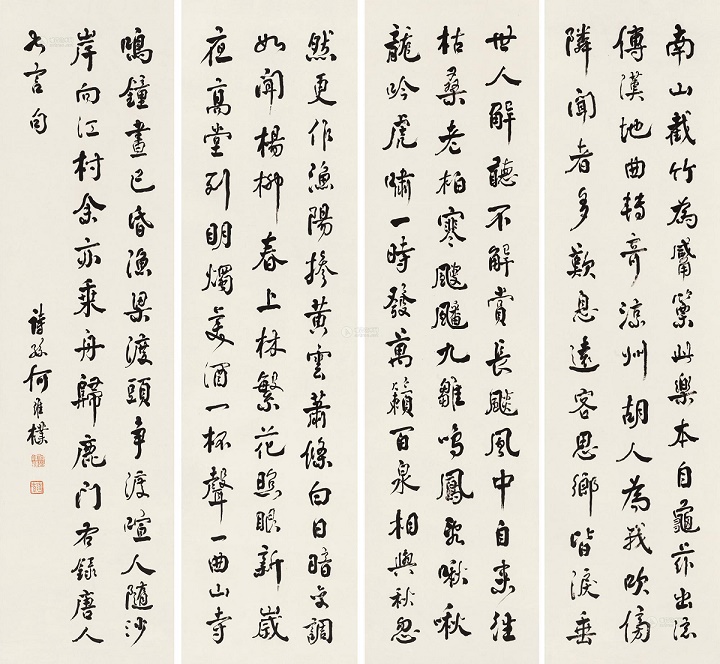 南山截竹為觱篥此樂本自龜茲出流
傳漢地曲轉奇涼州胡人為我吹傍
隣聞者多歎息遠客思鄉皆淚垂
世人解聽不解賞長飈風中自來往
枯桑老柏寒颼飀九雛鳴鳳亂啾啾
龍吟虎嘯一時發萬籟百泉相與秋忽
然更作漁陽摻黃雲蕭條白日暗變調
如聞楊柳春上林繁花照眼新歲
夜高堂列明燭美酒一杯聲一曲山寺
鳴鐘晝已昏漁梁渡頭爭渡喧人隨沙
岸向江村余亦乘舟歸鹿門右錄唐人
七言句
詩孫何維樸